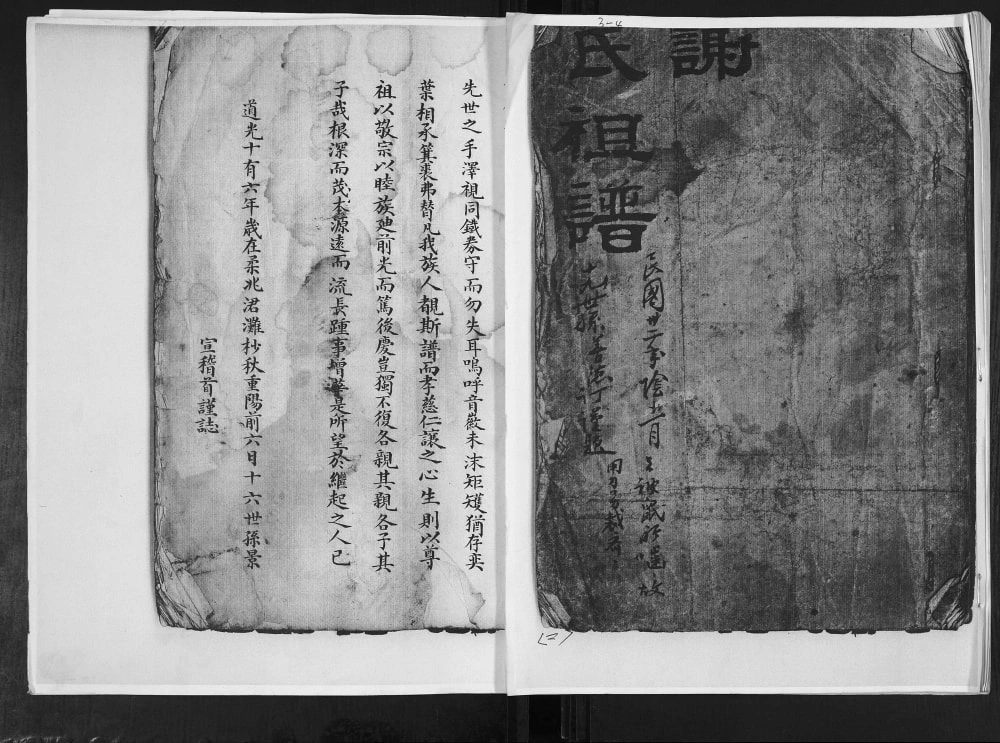 3-4
謝
氏
祖
譜
民國廿二年陰五月
(二)
先世之手澤視同鐵券守而勿失耳嗚呼音徽未沫矩矱猶存奕
葉相承箕裘弗替凡我族人覩斯譜而孝慈仁讓之心生則以尊
祖以敬宗以睦族廸前光而篤後慶豈獨不復各親其親各子其
子哉根深而茂本源遠而流長踵事增華是所望於繼起之人已
道光十有六年歲在柔兆涒灘杪秋重陽前六日十六世孫景
宣稽首謹誌